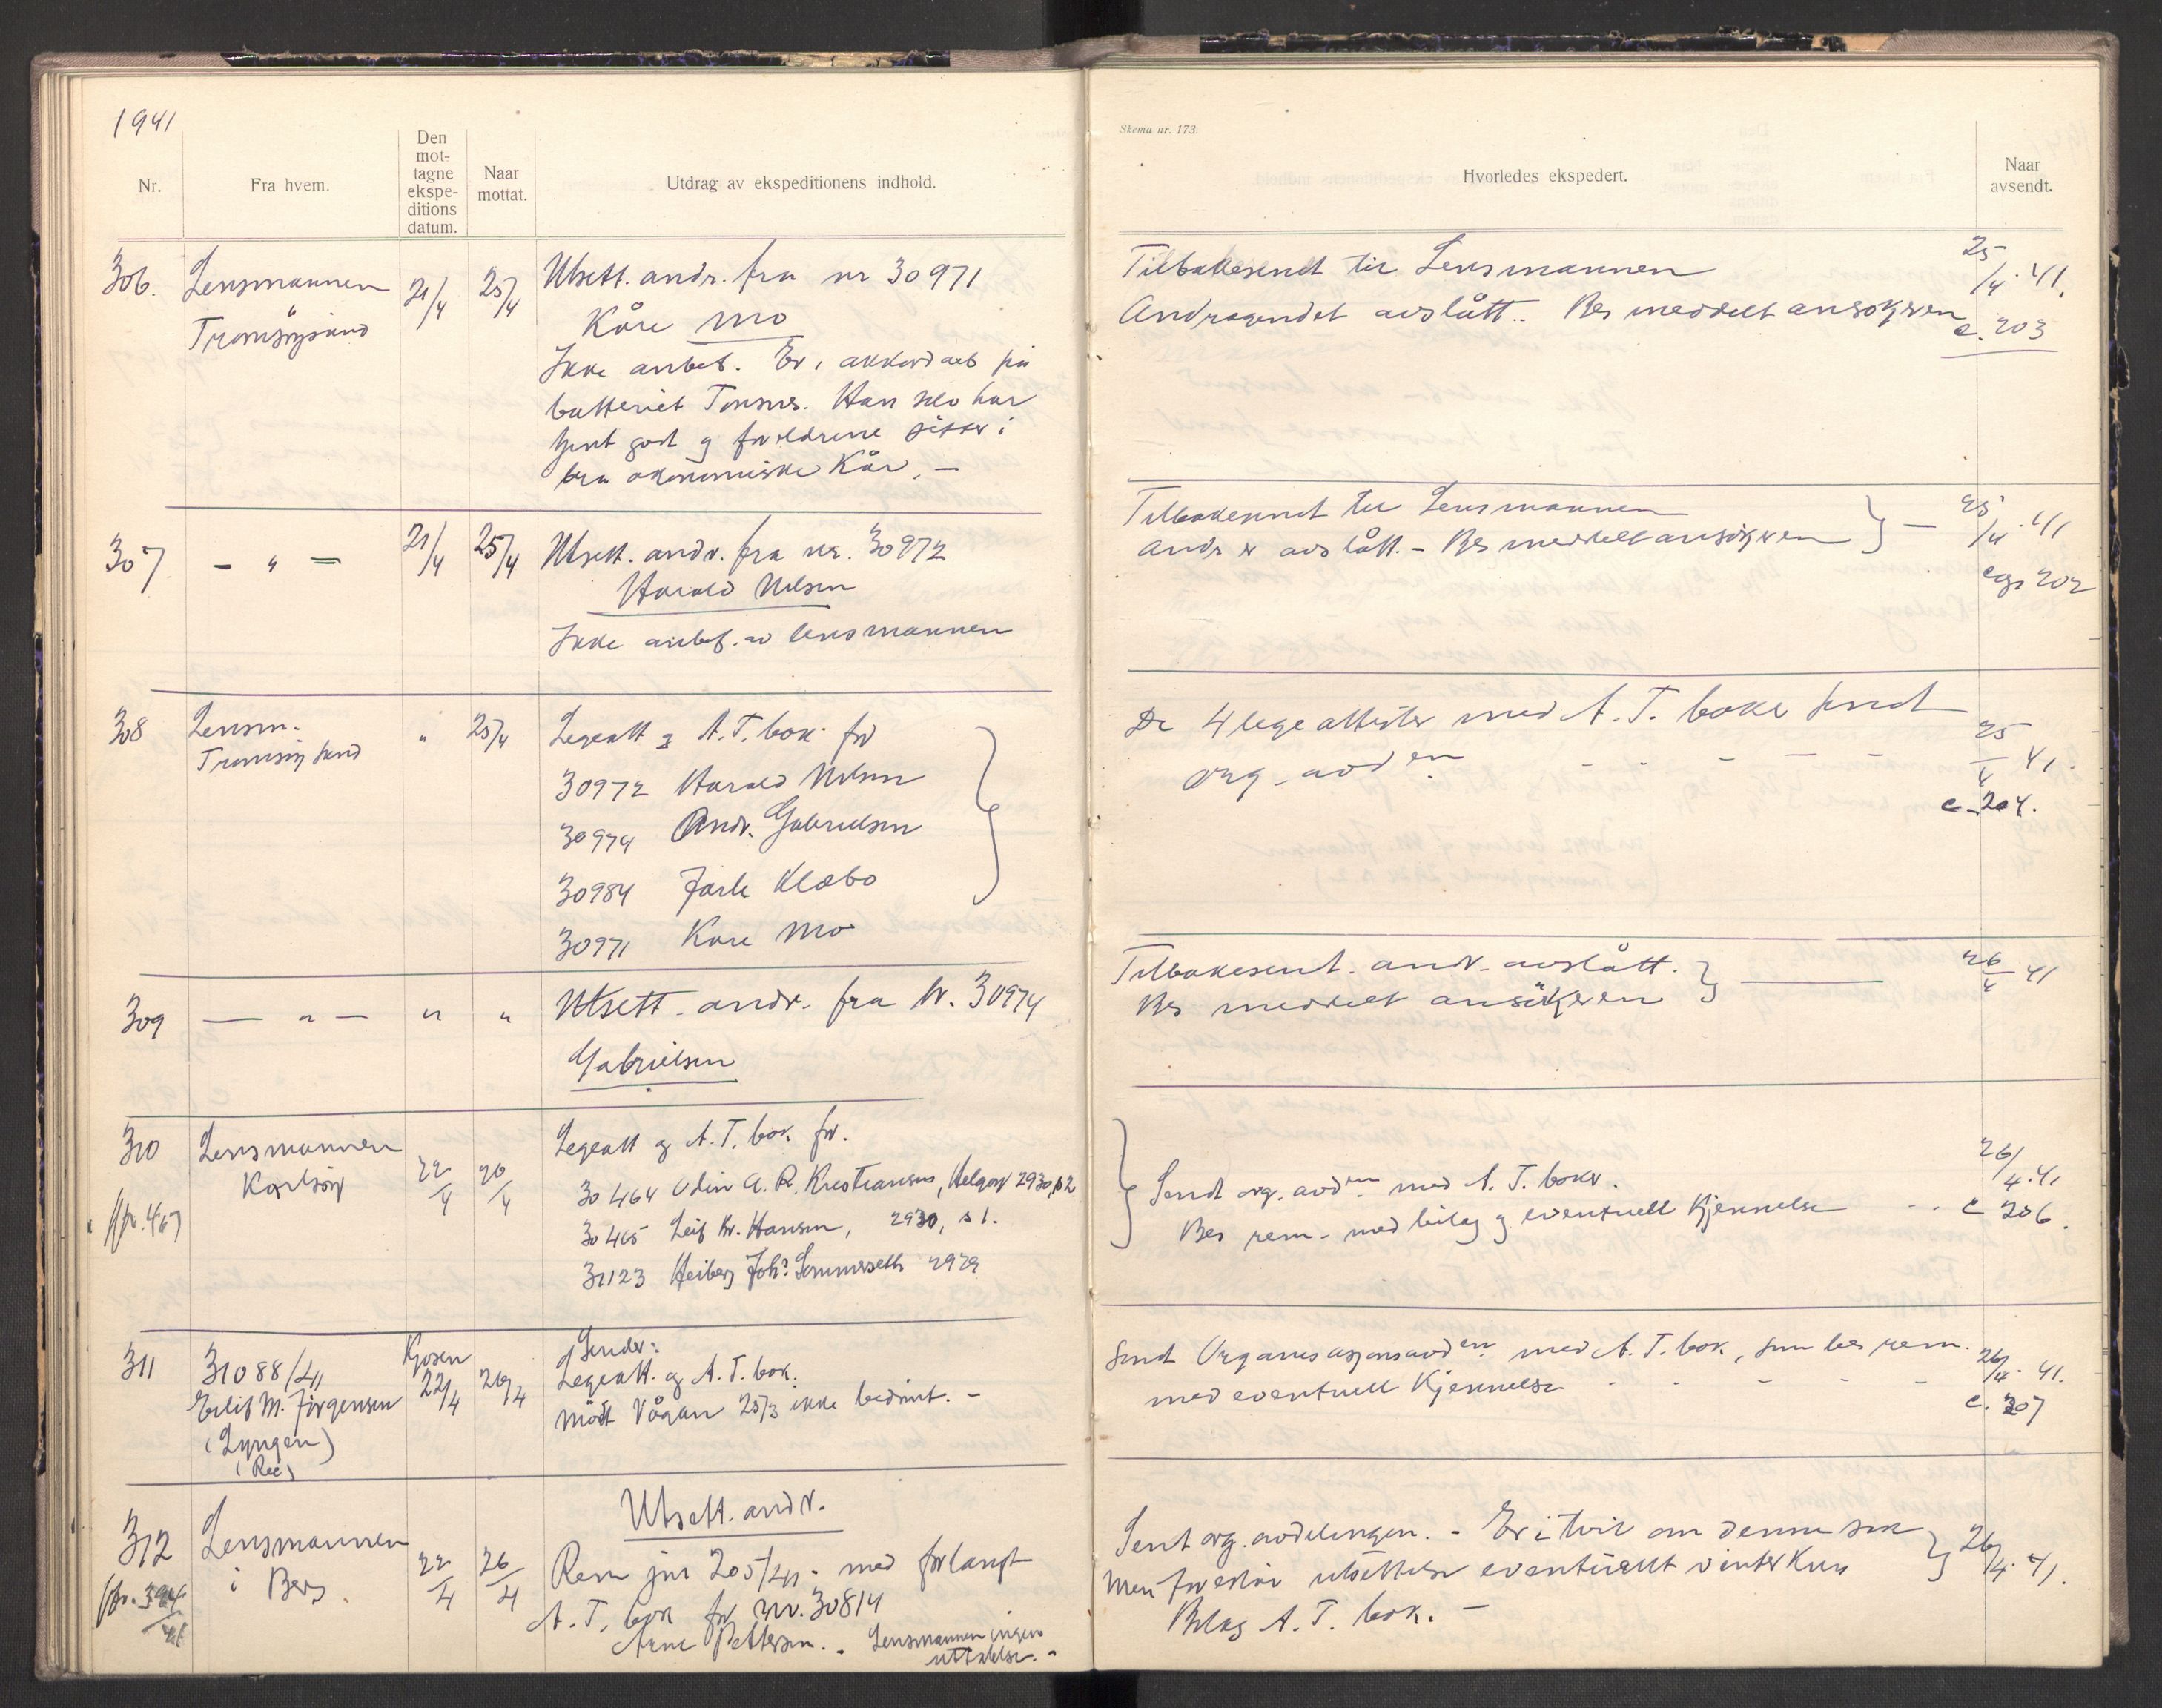 1941
Nr.
Fra hvem.
Den mot-
tagne
ekspe-
ditions
datum.
Naar
mottat.
Utdrag av ekspeditionens indhold.
306. Lensmannen 21/4 25/4 Utsett. andr. fra nr 30971
Tromsøysund
Kåre Mo
Ikke anbef. Er i akkordarb på
batteriet Tonsnes. Han selv har
tjent godt og foreldrene sitter i
bra økonomiske Kår. —
307 — " — 21/4 25/4 Utsett. andr. fra nr. 30972
Harald Nilsen
Ikke anbef. av lensmannen
308 Lensm. " 25/4 Legeatt og A.T. bok for
Tromsöysund
30972 Harald Nilsen
30974 Andr. Gabrielsen
30984 Jarle Klæbo
30971 Kåre Mo
309 — " — " " Utsett. andr. fra Nr. 30974
Gabrielsen
310 Lensmannen 22/4 26/4 Legeatt og A.T. bok for.
Karlsöy
30464 Odin A. R. Kristiansen, Helgöy 2930, s2
30465 Leif Kr. Hansen, 2930, s 1.
31123 Heiberg Joh? Sommerseth 2929
311 31088/41 22/4 26/4 Sender:
Legeatt. og A.T. bok.
Erlif M. Jörgensen
Mött Vågan 25/3 ikke bedömt. -
(Lyngen)
312 Lensmannen 22/4 26/4 Utsett. andr.
i Berg.
Rem jnr 205/41 - med forlangt
A.T. bok for nr. 30814
Arne Pettersen. - Lensmannen ingen
uttalelse. -
Skema nr. 173.
Hvorledes ekspedert.
Naar
avsendt.
Tilbakesendt til Lensmannen 25/4. 41.
Andragendet avslått.. Bes meddelt ansøkeren c. 203
Tilbakesendt til Lensmannen 25/4. 41
Andr er avslått. - Bes meddelt ansökeren — 202
De 4 legeattester med A.T. boker sendt 25/4 41.
org - avd en - - - - - c. 204.
Tilbakesent. andr. avslått. 26/4 41
Bes meddelt ansökeren
Sendt org. avd en med A.T. boker. 26/4. 41
Bes rem. med bilag og eventuell Kjennelse - - c 206.
Sendt Organisasjonsavd en med A.T. bok, som bes rem. 26/4. 41.
med eventuell Kjennelse - - - - - c. 207
Sent org. avdelingen. - Er i tvil om denne sak 26/4. 41.
men foreslår utsettelse eventuellt vinterkurs
Bilag A.T. bok. -